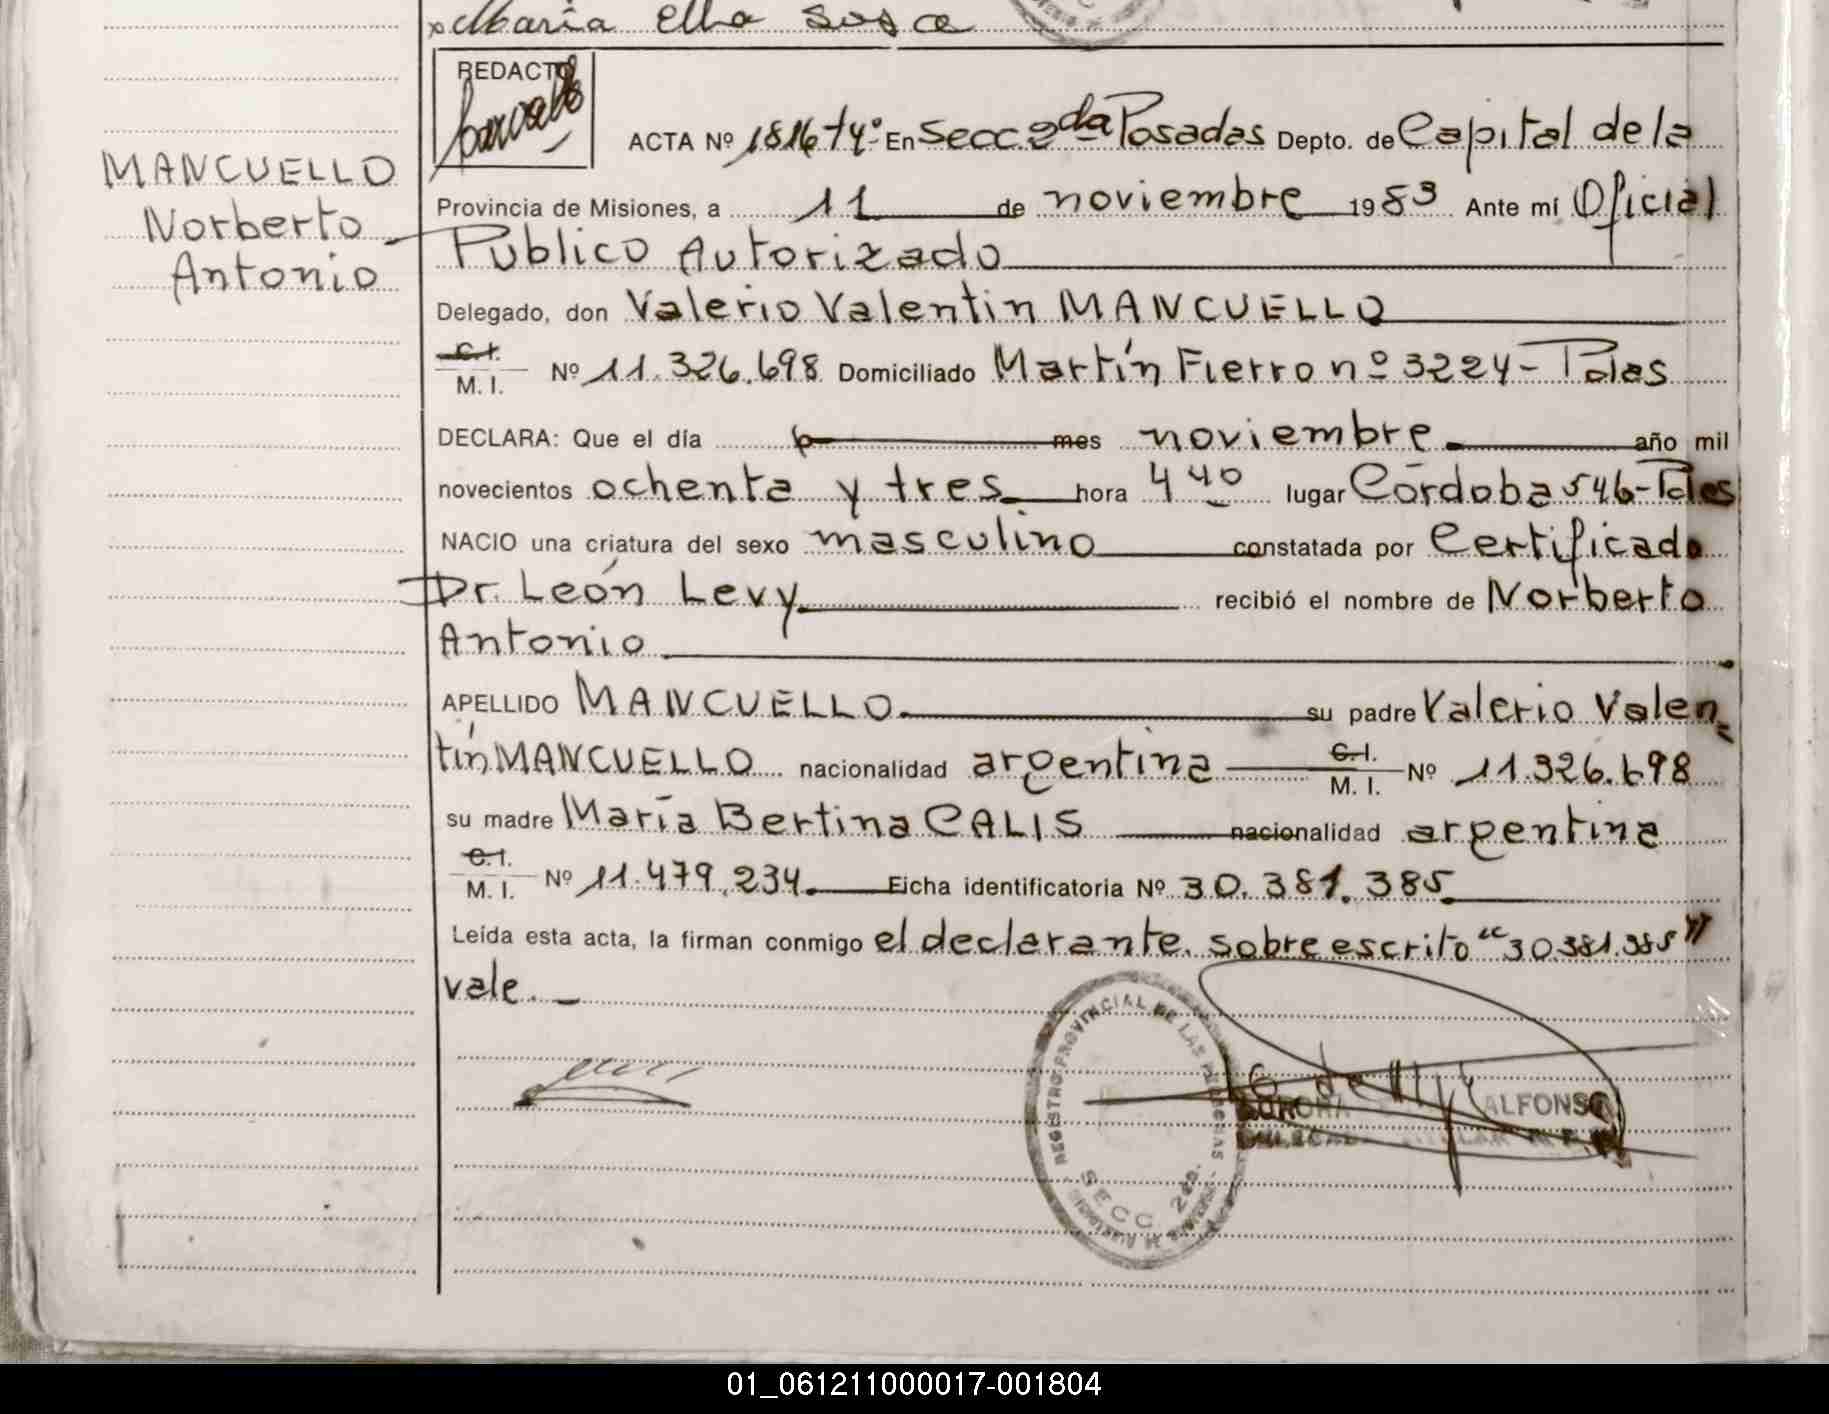 María Elba Sosa
REDACTO
MANCUELLO
Norberto
Antonio
ACTA Nº 1816 Tº 4º En Secc. 2da Posadas Depto. de Capital de la
Provincia de Misiones, a 11 de noviembre 1983 Ante mí Oficial
Publico Autorizado
Delegado, don Valerio Valentin MANCUELLO
C.I.
M. I. Nº 11.326.698 Domiciliado Martín Fierro nº 3224- Pdas
DECLARA: Que el día 6 mes noviembre año mil
novecientos ochenta y tres hora 4 40 lugar Córdoba 546- Pdas
NACIO una criatura del sexo masculino constatada por Certificado
Dr. León Levy recibió el nombre de Norberto
Antonio
APELLIDO MANCUELLO su padre Valerio Valen
tín MANCUELLO nacionalidad argentina C.I.
M. I. Nº 11.326.698
su madre María Bertina CALIS nacionalidad argentina
C.I.
M. I. Nº 11.479.234 Ficha identificatoria Nº 30.381.385
Leída esta acta, la firman conmigo el declarante. sobre escrito "30381.385"
vale.
REGISTRO PROVINCIAL DE LAS PERSONAS
SECC. 2da.
AURORA ALFONSO
01_061211000017-001804